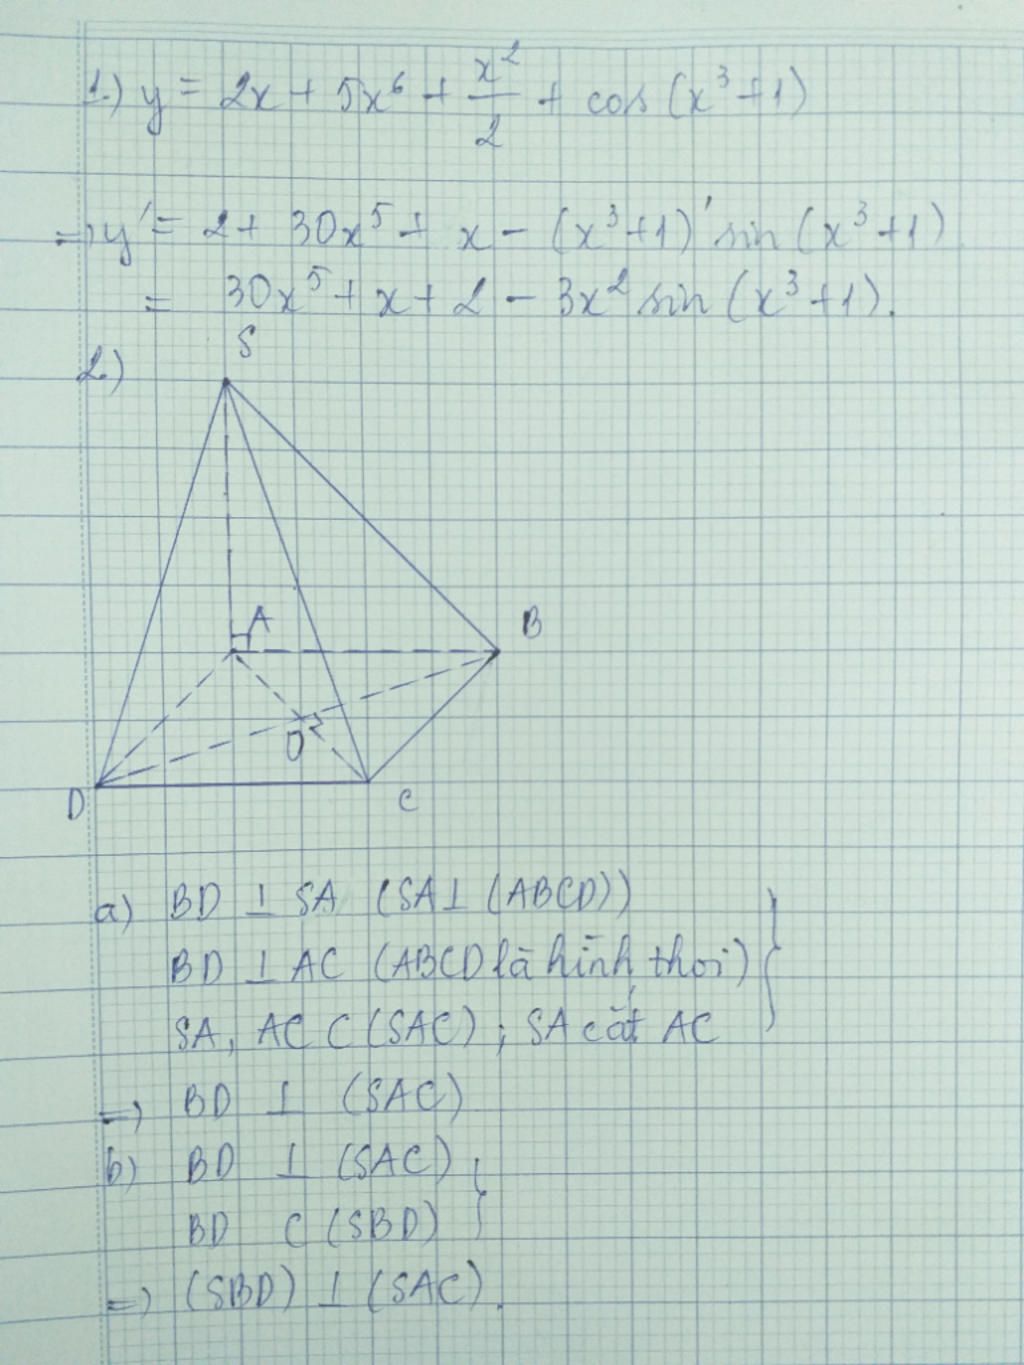 1.) y = 2x + 5x⁶ + x²/2 + cos (x³+1)
=> y' = 2 + 30x⁵ + x - (x³+1)' sin (x³+1)
= 30x⁵ + x + 2 - 3x² sin (x³+1).
2.)
S
A
B
O
D
C
a) BD ⊥ SA (SA ⊥ (ABCD))
BD ⊥ AC (ABCD là hình thoi)
SA, AC ⊂ (SAC) ; SA cắt AC
=> BD ⊥ (SAC)
b) BD ⊥ (SAC)
BD ⊂ (SBD)
=> (SBD) ⊥ (SAC).